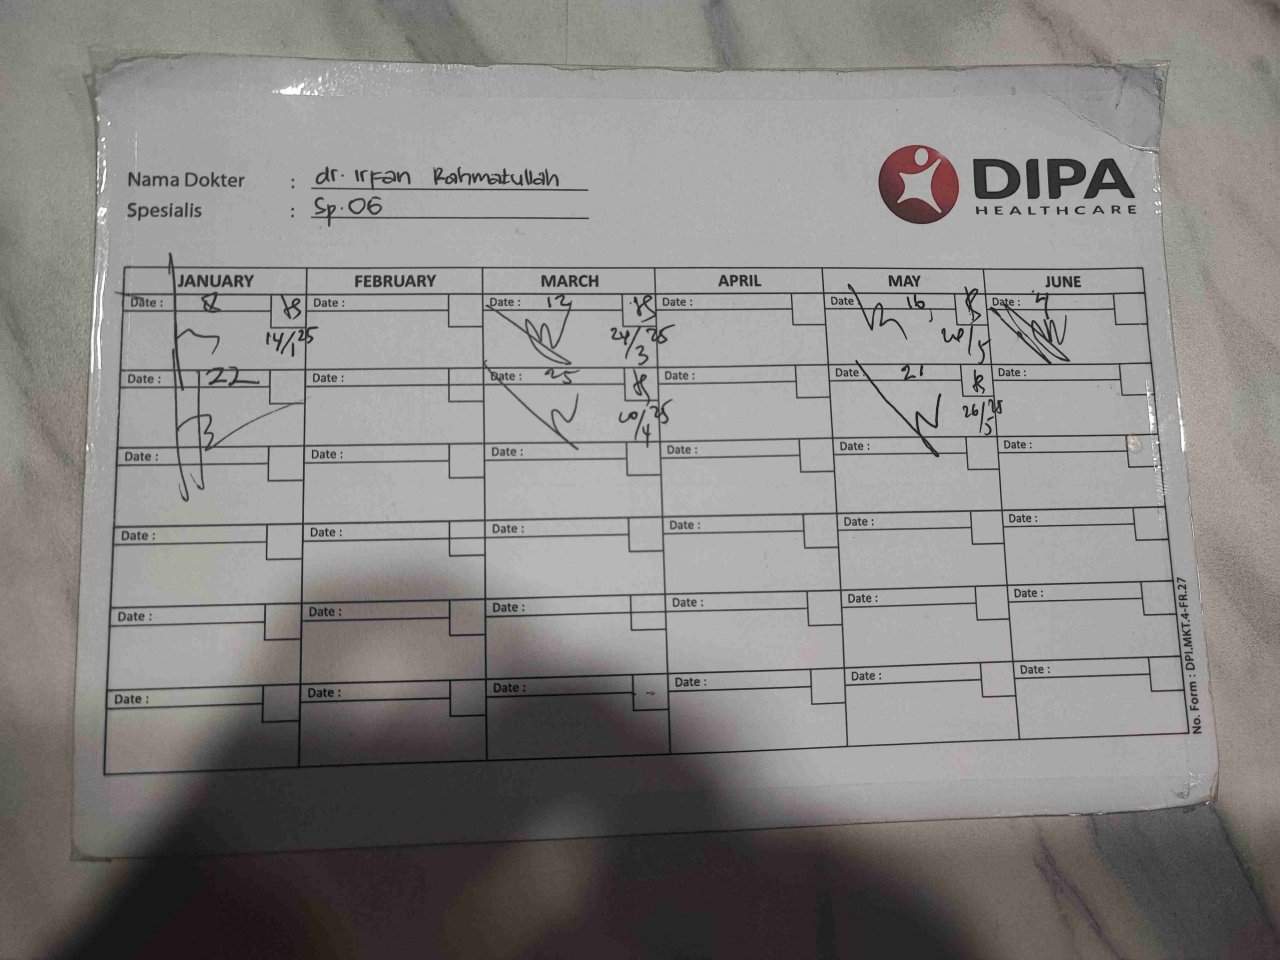 Nama Dokter : dr. Irfan Rahmatullah
Spesialis : Sp.OG
DIPA
HEALTHCARE
JANUARY FEBRUARY MARCH APRIL MAY JUNE
Date : 8 Date : Date : 12 Date : Date 16 Date : 4
14/1 25 24/3 25 20/5
Date : 22 Date : Date : 25 Date : Date : 21 Date :
20/4 25 26/5 25
Date : Date : Date : Date : Date : Date :
Date : Date : Date : Date : Date : Date :
Date : Date : Date : Date : Date : Date :
Date : Date : Date : Date : Date : Date :
No. Form : DPI.MKT.4-FR.27